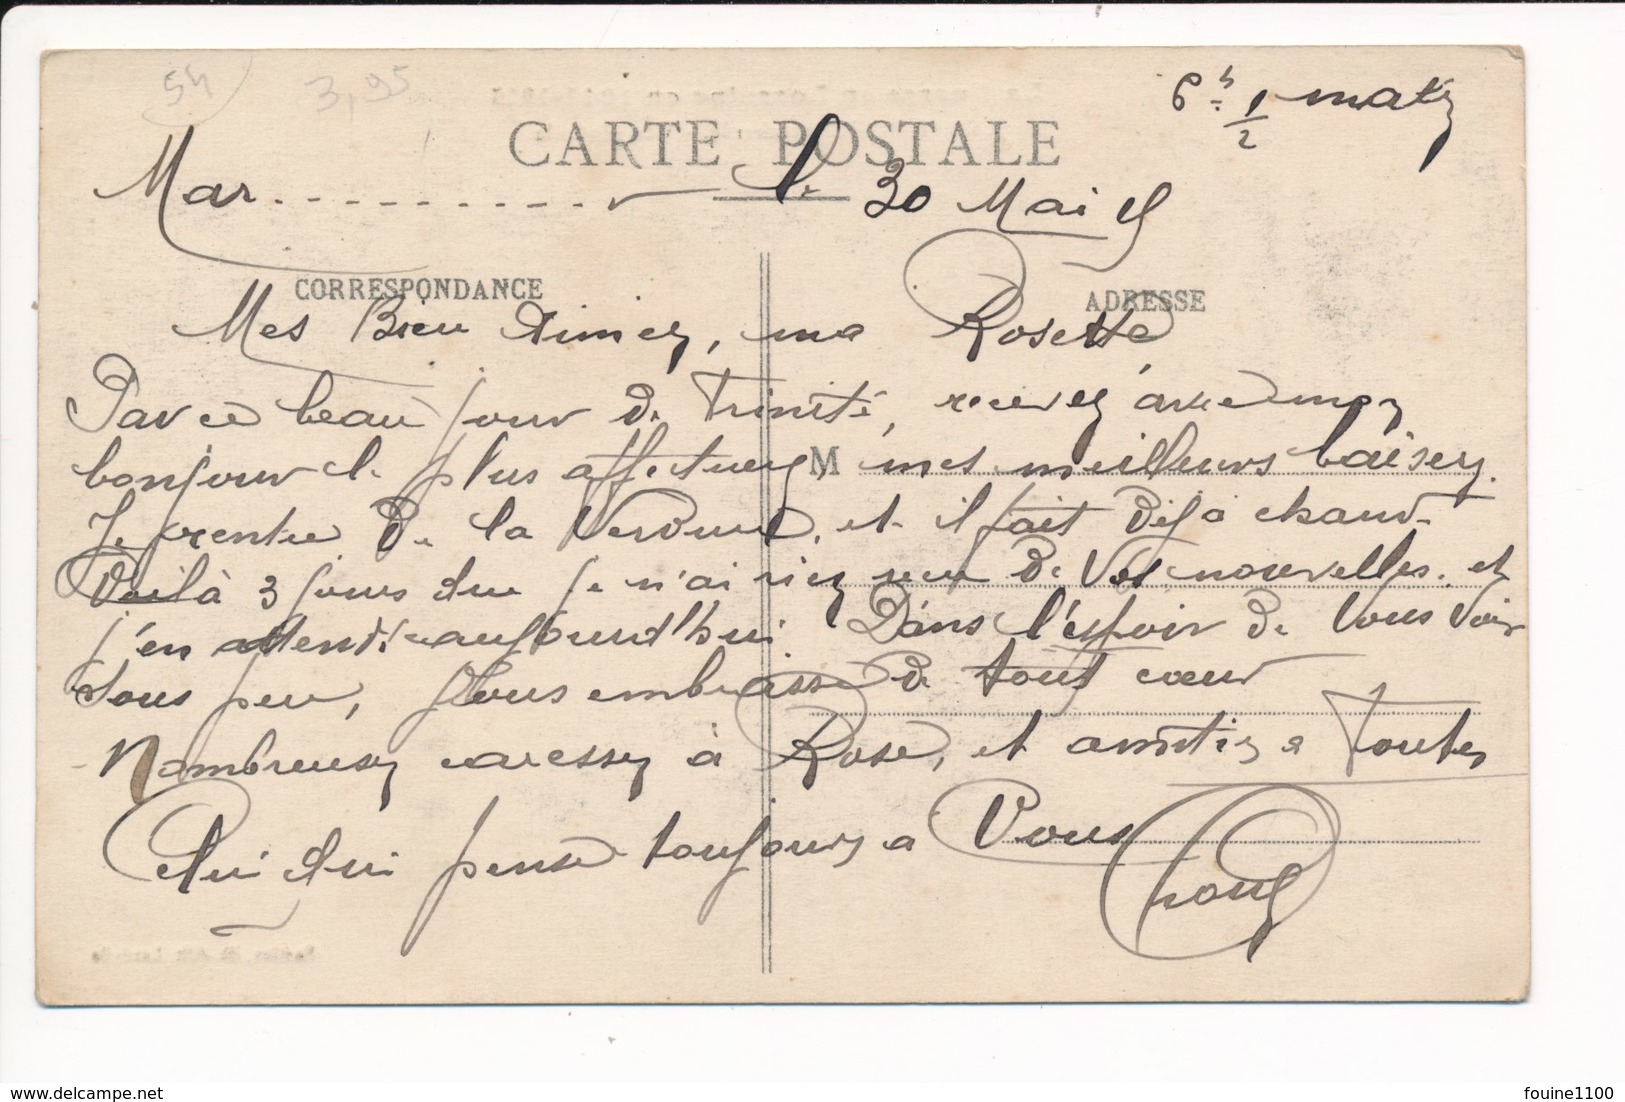 54
3,95
6h 1/2 matin
CARTE POSTALE
Mar.......... le 30 Mai 15
CORRESPONDANCE
ADRESSE
Mes Bien Aimés, ma Rosette
Par ce beau jour de Trinité, recevez avec mon
bonjour le plus affectueux M mes meilleurs baisers.
Je rentre de la Verdure, et il fait déjà chaud.
Voilà 3 jours que je n'ai rien reçu de Vos nouvelles. et
j'en attends aujourd'hui. Dans l'espoir de Vous Voir
sous peu, Vous embrasse de tout cœur
Nombreuses caresses à Rose, et amitiés a Toutes
Celui qui pense toujours a Vous
delcampe.net
fouine1100